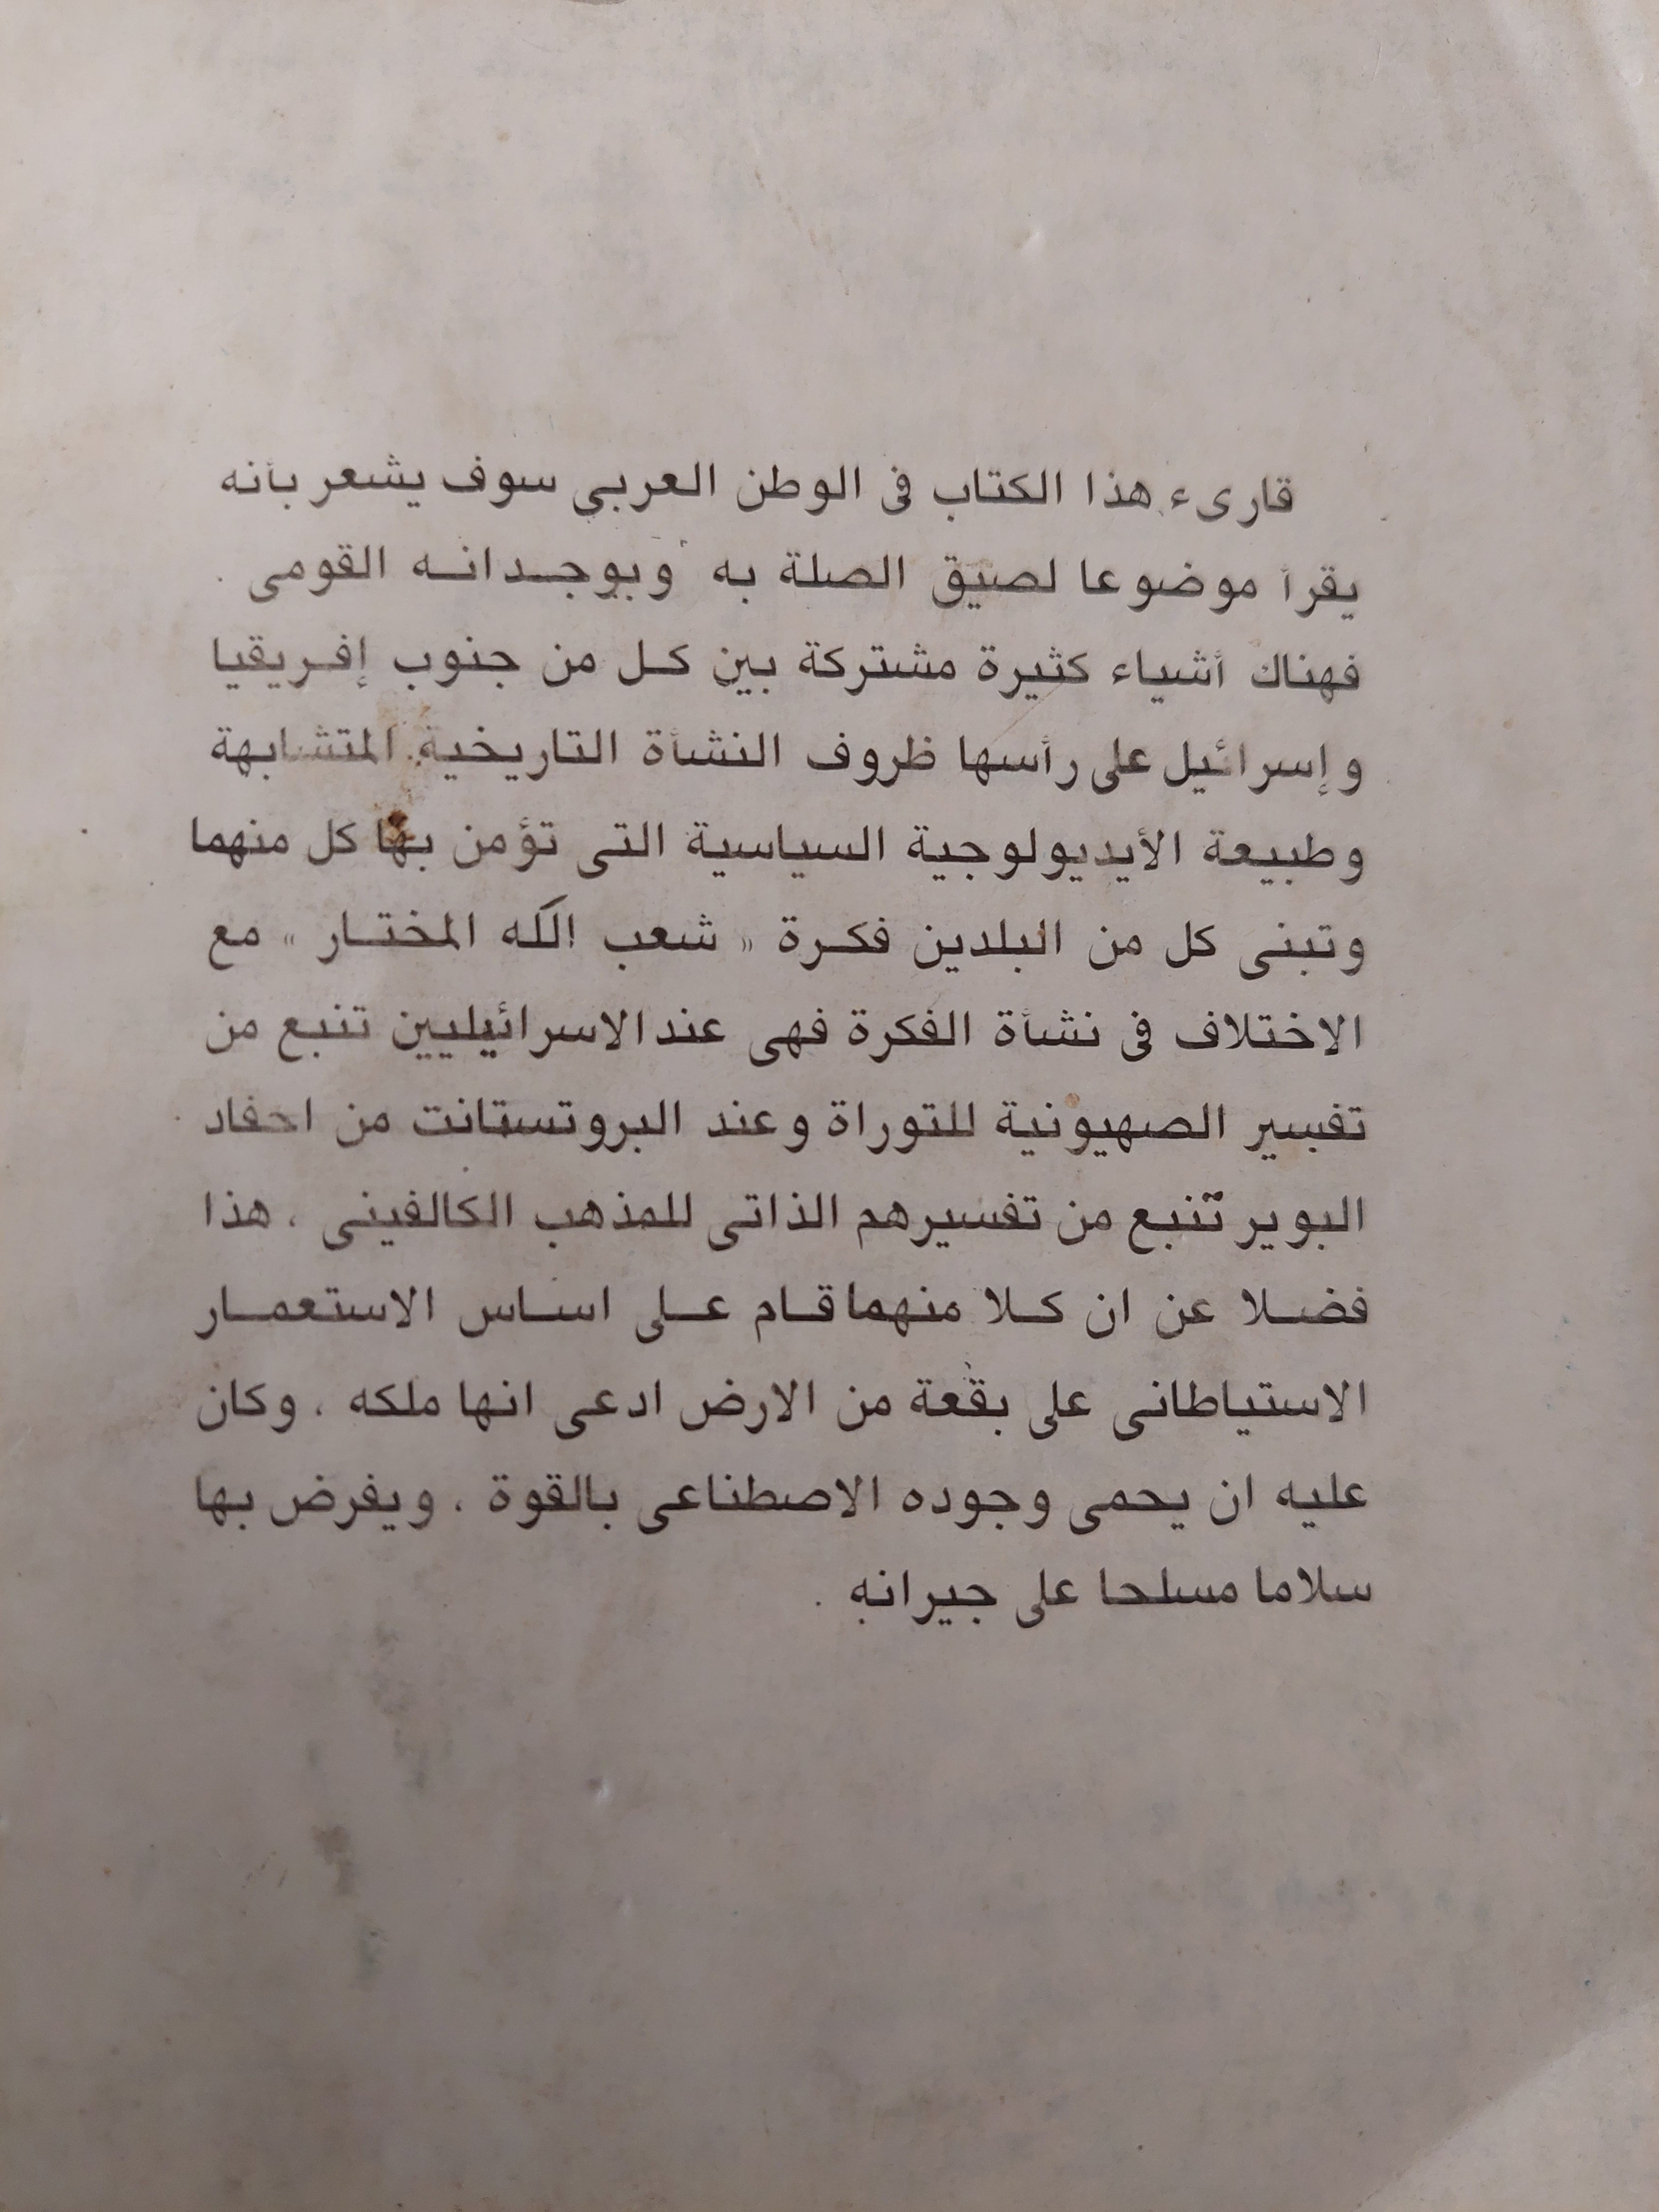 قارىء هذا الكتاب فى الوطن العربى سوف يشعر بأنه
يقرأ موضوعا لصيق الصلة به وبوجدانه القومى .
فهناك أشياء كثيرة مشتركة بين كل من جنوب إفريقيا
وإسرائيل على رأسها ظروف النشأة التاريخية المتشابهة
وطبيعة الأيديولوجية السياسية التى تؤمن بها كل منهما
وتبنى كل من البلدين فكرة « شعب الله المختار » مع
الاختلاف فى نشأة الفكرة فهى عند الاسرائيليين تنبع من
تفسير الصهيونية للتوراة وعند البروتستانت من احفاد
البوير تنبع من تفسيرهم الذاتى للمذهب الكالفينى ، هذا
فضلا عن ان كلا منهما قام على اساس الاستعمار
الاستياطانى على بقعة من الارض ادعى انها ملكه ، وكان
عليه ان يحمى وجوده الاصطناعى بالقوة ، ويفرض بها
سلاما مسلحا على جيرانه .